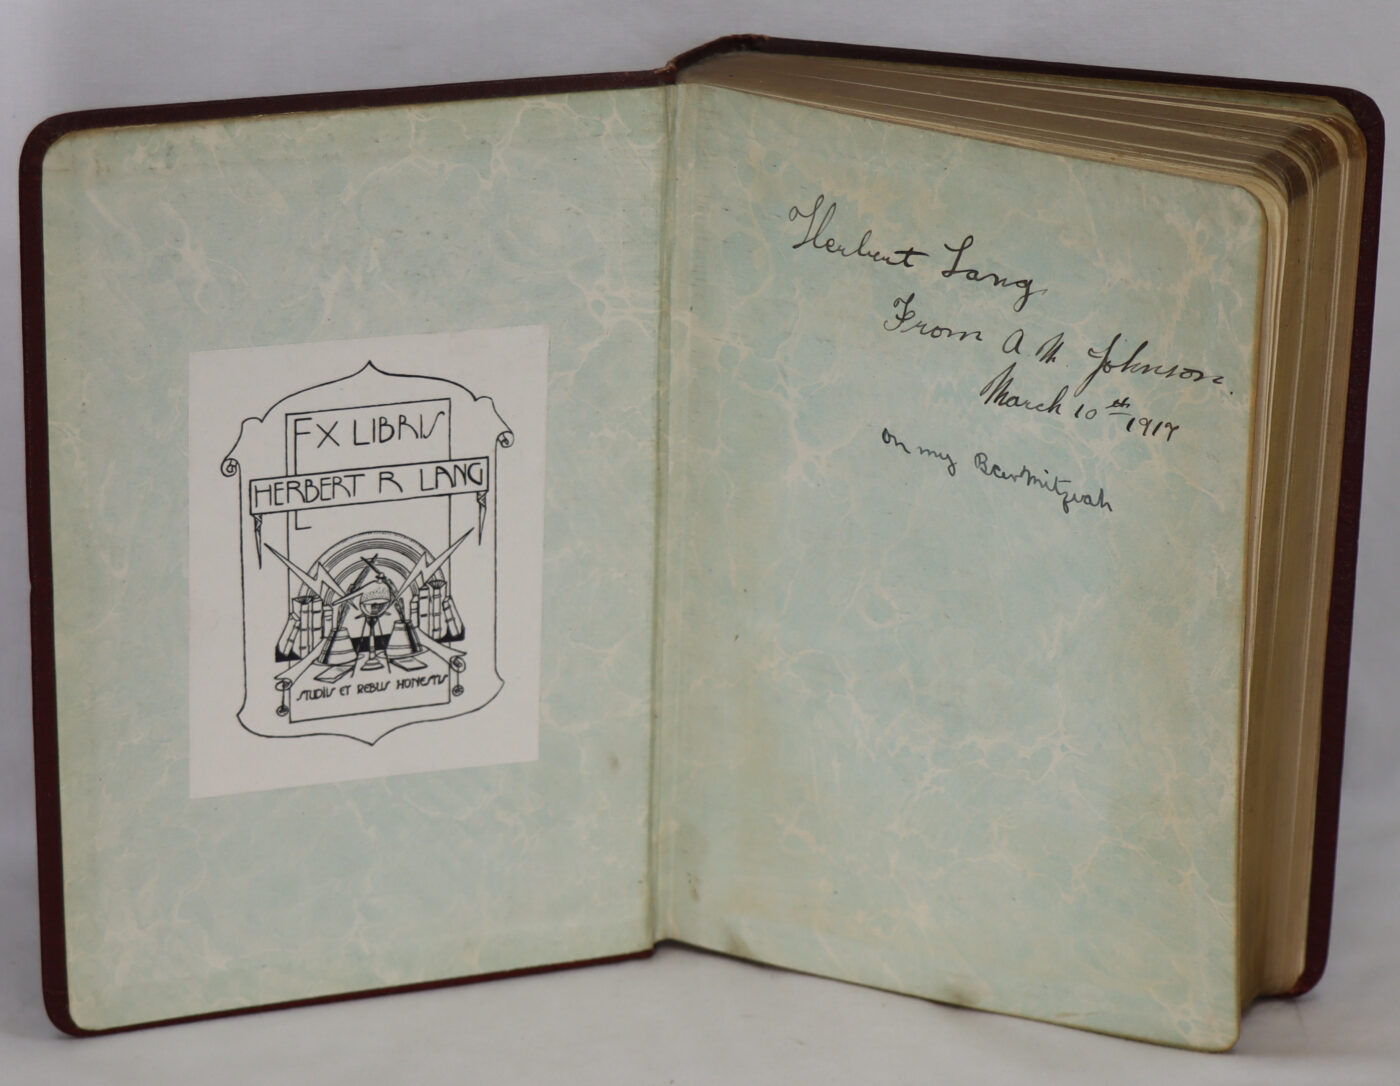 EX LIBRIS
HERBERT R LANG
L
STUDIIS ET REBUS HONESTIS
Herbert Lang
From A. M. Johnson.
March 10th 1917
on my Bar Mitzvah